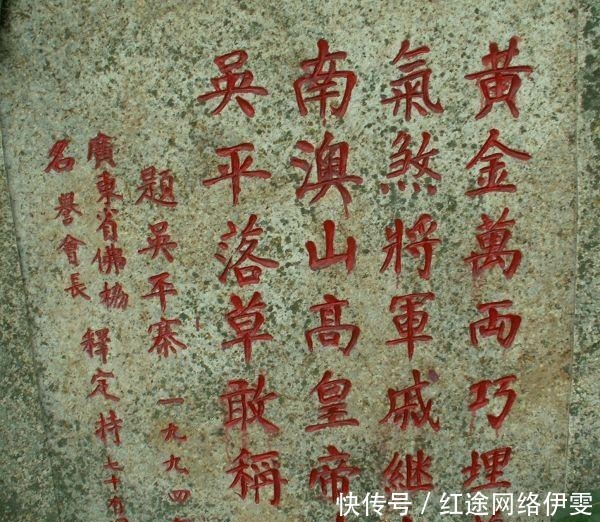 黃金萬両巧埋
氣煞將軍戚繼
南澳山高皇帝
吳平落草敢稱
題吳平寨 一九九四
廣東省佛協
名譽會長
釋定持 七十
快传号 / 红途网络伊雯